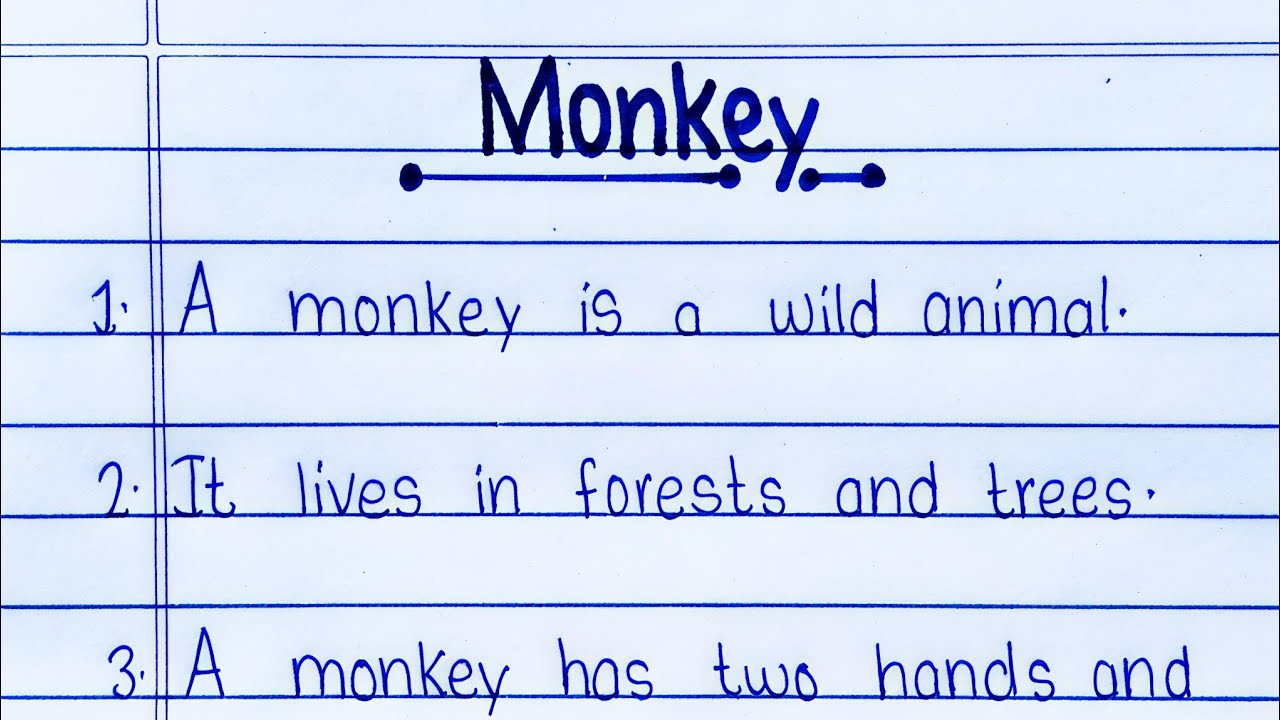 Monkey
1. A monkey is a wild animal.
2. It lives in forests and trees.
3. A monkey has two hands and